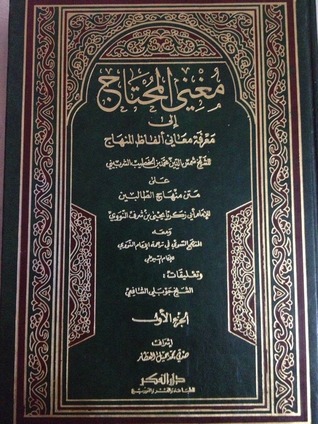 مغني المحتاج
إلى
معرفة معاني ألفاظ المنهاج
للشيخ شمس الدين محمد بن الخطيب الشربيني
على
متن منهاج الطالبين
للإمام أبي زكريا يحيى بن شرف النووي
ومعه
المنهج السوي في ترجمة الإمام النووي
للإمام السيوطي
وتعليقات:
الشيخ جوبلي الشافعي
الجزء الأول
إشراف
صدقي محمد جميل العطار
دار الفكر
للطباعة والنشر والتوزيع